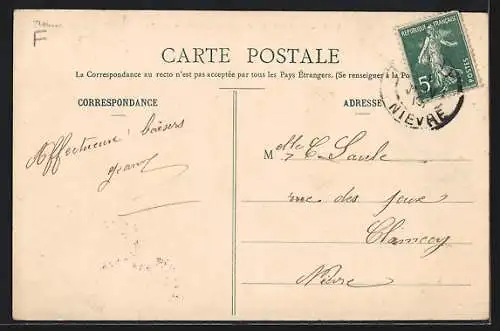 F
CARTE POSTALE
La Correspondance au recto n'est pas acceptée par tous les Pays Étrangers. (Se renseigner à la Po
CORRESPONDANCE
ADRESSE
REPUBLIQUE FRANÇAISE
POSTES
5
NIEVRE
Affectueux baisers
Jeanne
Melle C. Saule
rue des Jeux
Clamecy
Nièvre